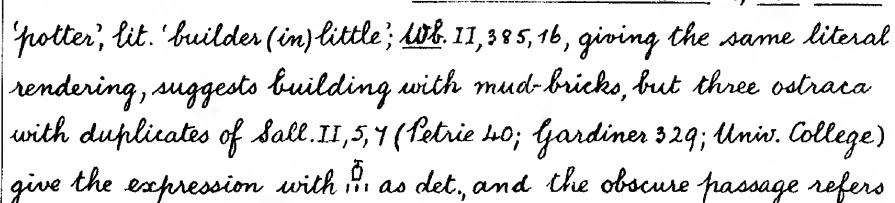 'potter', lit. 'builder (in) little'; Wb. II, 385, 16, giving the same literal
rendering, suggests building with mud-bricks, but three ostraca
with duplicates of Sall. II, 5, 7 (Petrie 40; Gardiner 329; Univ. College)
give the expression with as det., and the obscure passage refers